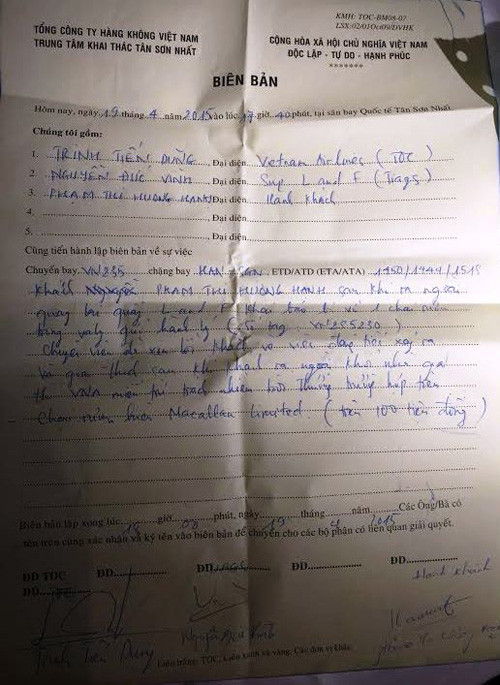 KMH: TOC-BM08-07
LSX:02/01Oct09/DVHK
TỔNG CÔNG TY HÀNG KHÔNG VIỆT NAM
TRUNG TÂM KHAI THÁC TÂN SƠN NHẤT
CỘNG HÒA XÃ HỘI CHỦ NGHĨA VIỆT NAM
ĐỘC LẬP - TỰ DO - HẠNH PHÚC
*******
BIÊN BẢN
Hôm nay, ngày 19 tháng 4 năm 2015 vào lúc 17 giờ 40 phút, tại sân bay Quốc tế Tân Sơn Nhất.
Chúng tôi gồm:
1. TRỊNH TIẾN DŨNG, Đại diện Vietnam Airlines (TOC)
2. NGUYỄN ĐỨC VINH, Đại diện Sup L and F (Tiags)
3. PHẠM THỊ HƯƠNG HẠNH, Đại diện Hành khách
4. , Đại diện
5. , Đại diện
Cùng tiến hành lập biên bản về sự việc
Chuyến bay VN235 chặng bay HAN - SGN, ETD/ATD (ETA/ATA) 1750/1944/1518
Khách PHẠM THỊ HƯƠNG HẠNH sau khi ra ngoài
quay lại quầy L and F khai báo bị vỡ 1 chai rượu
trong valy gửi hành lý
Chuyên viên đã xin lỗi khách về việc đáng tiếc xảy ra
và giải thích sau khi khách ra ngoài khỏi nhà ga
thì VNA miễn trừ trách nhiệm bồi thường trường hợp trên
Chai rượu hiệu Macallan Limited. (trên 100 triệu đồng)
Biên bản lập xong lúc 18 giờ 08 phút, ngày 19 tháng 4 2015 Các Ông/Bà có
tên trên cùng xác nhận và ký tên vào biên bản để chuyển cho các bộ phận có liên quan giải quyết.
ĐD TOC ĐD ĐD ĐD ĐD
Hành khách
ĐD
Trịnh Tiến Dũng Nguyễn Đức Vinh
Liên trắng: TOC, Liên xanh và vàng: Các đơn vị khác